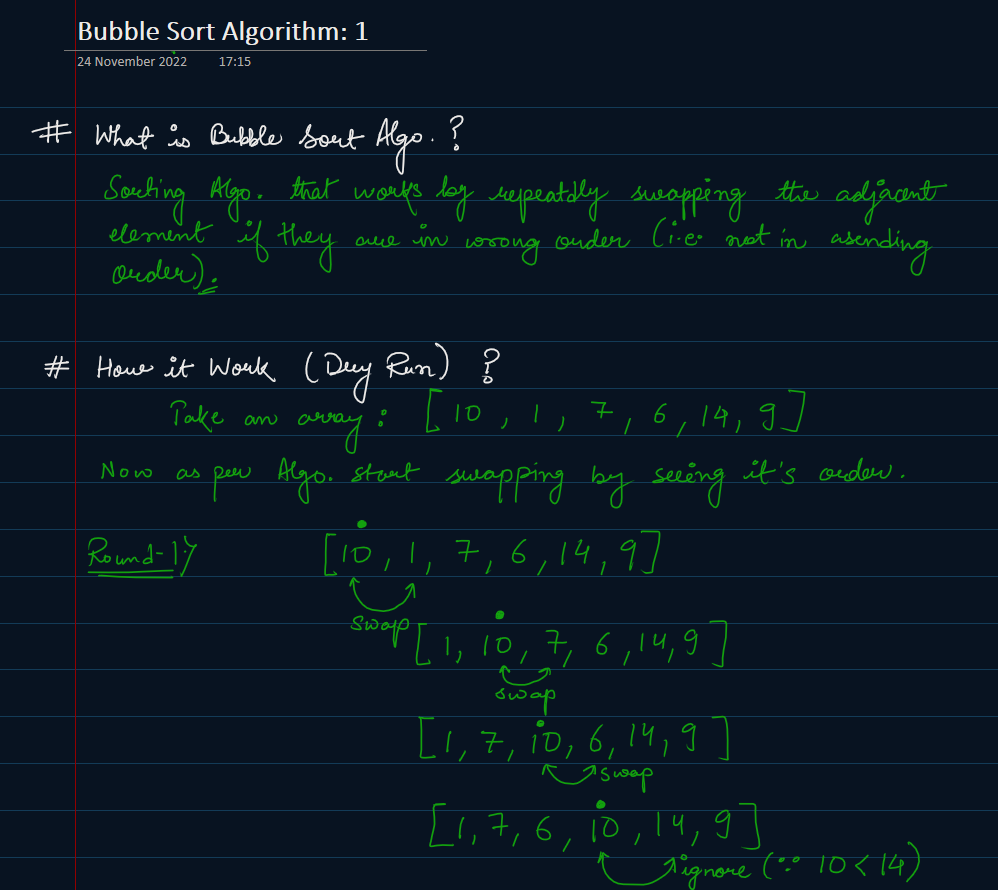 Bubble Sort Algorithm: 1
24 November 2022 17:15
# What is Bubble Sort Algo. ?
Sorting Algo. that works by repeatdly swapping the adjacent
element if they are in wrong order (i.e. not in asending
order).
# How it Work (Dry Run) ?
Take an array: [10, 1, 7, 6, 14, 9]
Now as per Algo. start swapping by seeing it's order.
Round-1 [10, 1, 7, 6, 14, 9]
swap
[1, 10, 7, 6, 14, 9]
swap
[1, 7, 10, 6, 14, 9]
swap
[1, 7, 6, 10, 14, 9]
ignore (∵ 10 < 14)